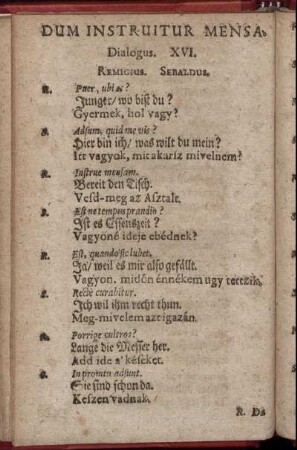 DUM INSTRUITUR MENSA.
Dialogus. XVI.
REMIGIUS. SEBALDUS.
R. Puer, ubi es?
Junger/ wo bist du?
Gyermek, hol vagy?
S. Adsum, quid me vis?
Hier bin ich/ was wilt du mein?
Itt vagyok, mit akarsz mivelnem?
R. Instrue mensam.
Bereit den Tisch.
Vesd-meg az Asztalt.
S. Est ne tempus prandii?
Ist es Essenszeit?
Vagyoné ideje ebédnek?
R. Est, quando sic lubet.
Ja/ weil es mir also gefällt.
Vagyon, midőn énnékem ugy tetczik.
S. Recte curabitur.
Ich wil ihm recht thun.
Meg-mivelem azt igazán.
R. Porrige cultros?
Lange die Messer her.
Add ide a' késeket.
S. In promtu adsunt.
Sie sind schon da.
Készen vadnak.
R. Da